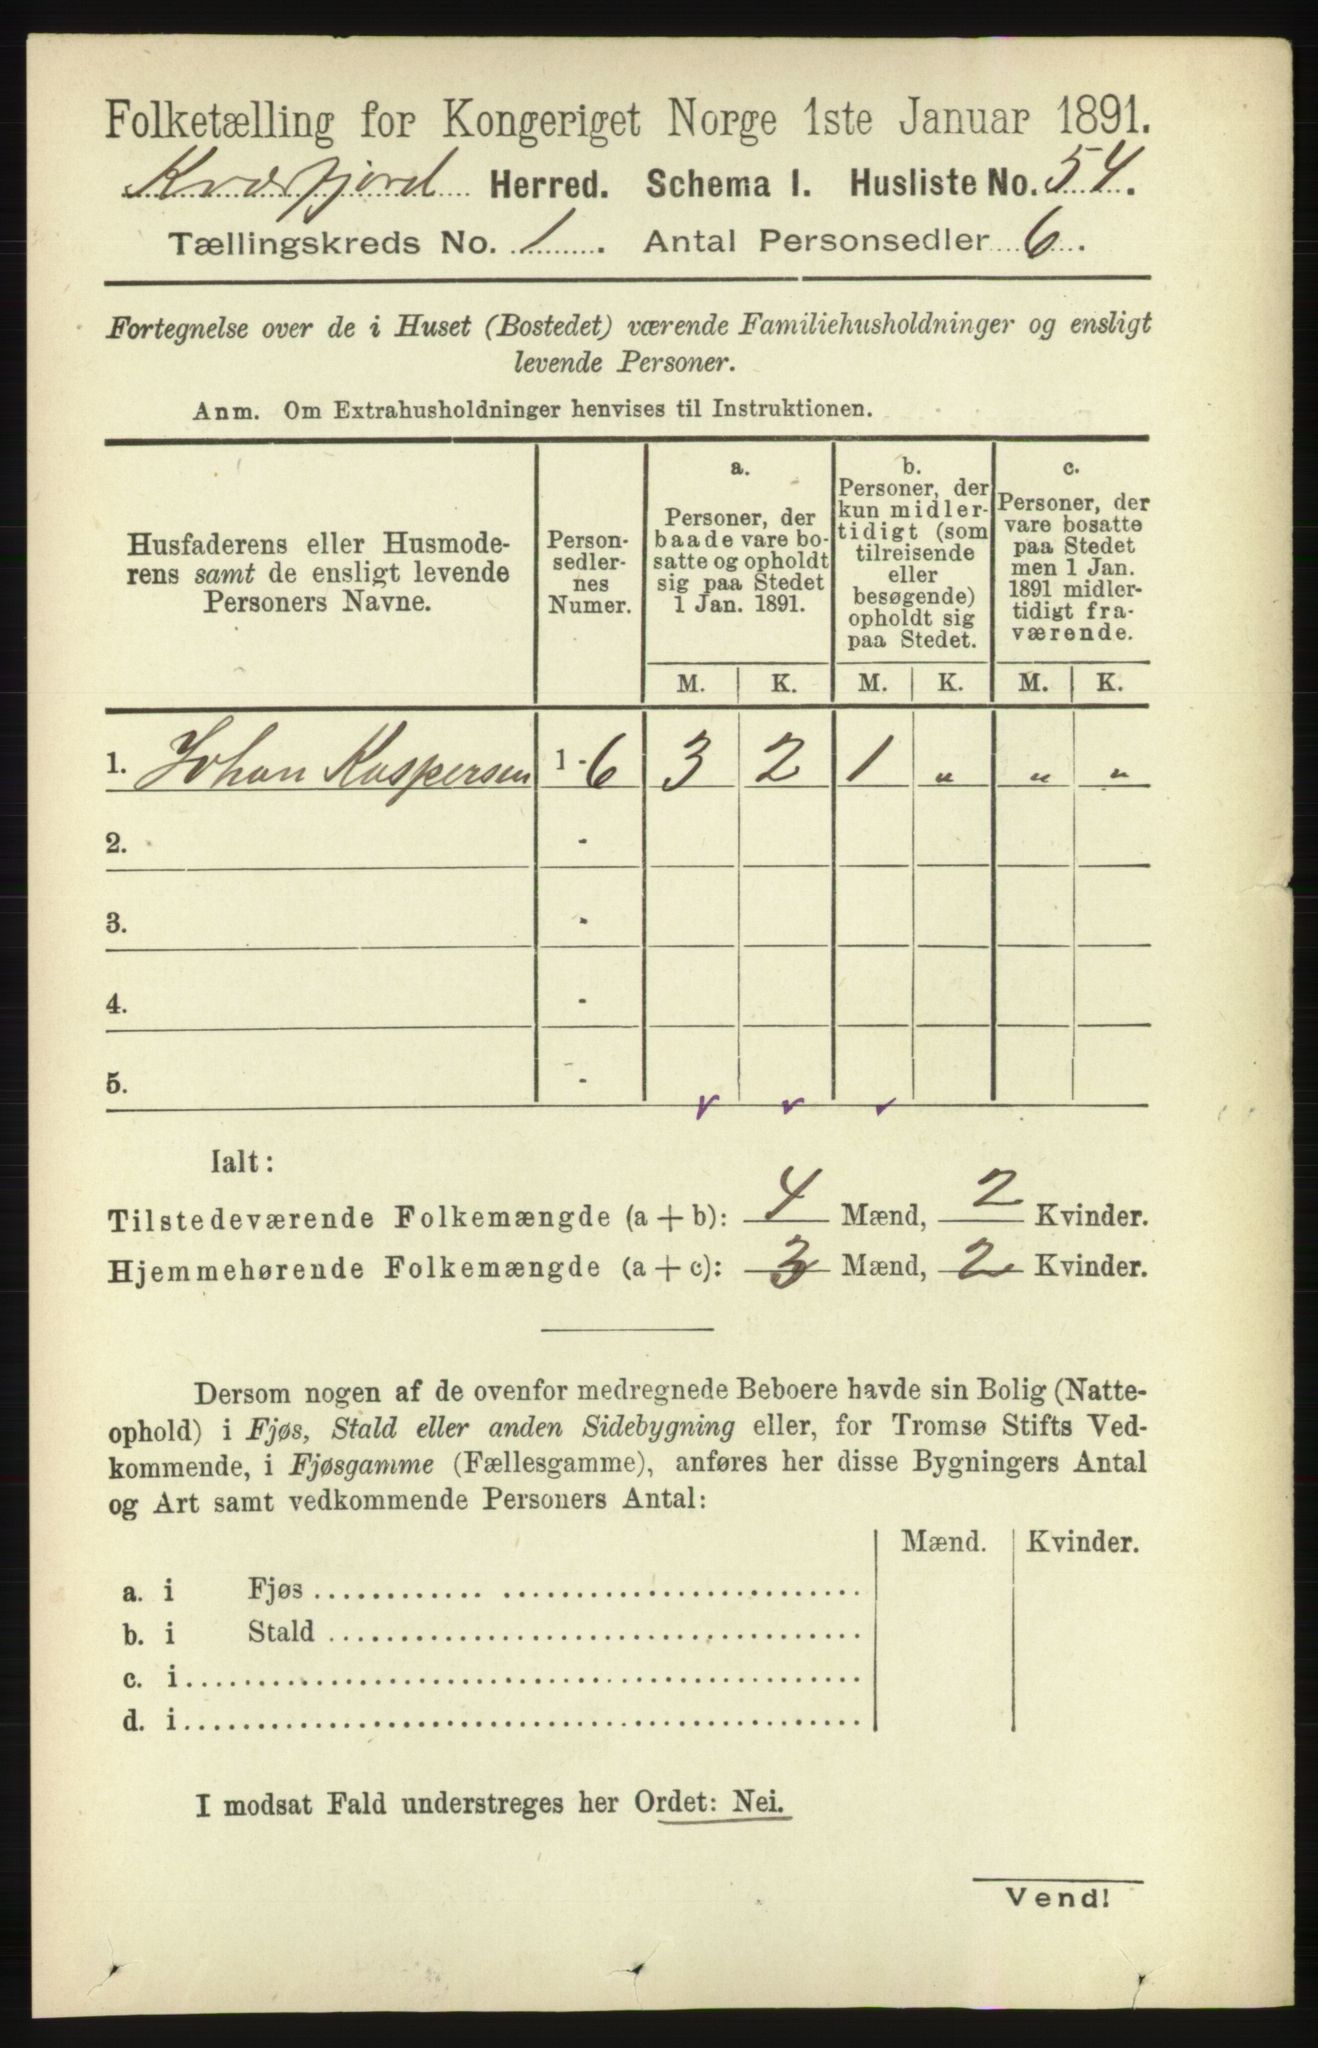 Folketælling for Kongeriget Norge 1ste Januar 1891.
Kvæfjord Herred. Schema I. Husliste No. 54.
Tællingskreds No. 1. Antal Personsedler 6.
Fortegnelse over de i Huset (Bostedet) værende Familiehusholdninger og ensligt
levende Personer.
Anm. Om Extrahusholdninger henvises til Instruktionen.
Husfaderens eller Husmode-
rens samt de ensligt levende
Personers Navne.
Person-
sedler-
nes
Numer.
a.
Personer, der
baade vare bo-
satte og opholdt
sig paa Stedet
1 Jan. 1891.
b.
Personer, der
kun midler-
tidigt (som
tilreisende
eller
besøgende)
opholdt sig
paa Stedet.
c.
Personer, der
vare bosatte
paa Stedet
men 1 Jan.
1891 midler-
tidigt fra-
værende.
M. K. M. K. M. K.
1. Johan Kaspersen 1 - 6 3 2 1 „ „ „
2. -
3. -
4. -
5. -
Ialt:
Tilstedeværende Folkemængde (a + b): 4 Mænd, 2 Kvinder.
Hjemmehørende Folkemængde (a + c): 3 Mænd, 2 Kvinder.
Dersom nogen af de ovenfor medregnede Beboere havde sin Bolig (Natte-
ophold) i Fjøs, Stald eller anden Sidebygning eller, for Tromsø Stifts Ved-
kommende, i Fjøsgamme (Fællesgamme), anføres her disse Bygningers Antal
og Art samt vedkommende Personers Antal:
Mænd. Kvinder.
a. i Fjøs
b. i Stald
c. i
d. i
I modsat Fald understreges her Ordet: Nei.
Vend!